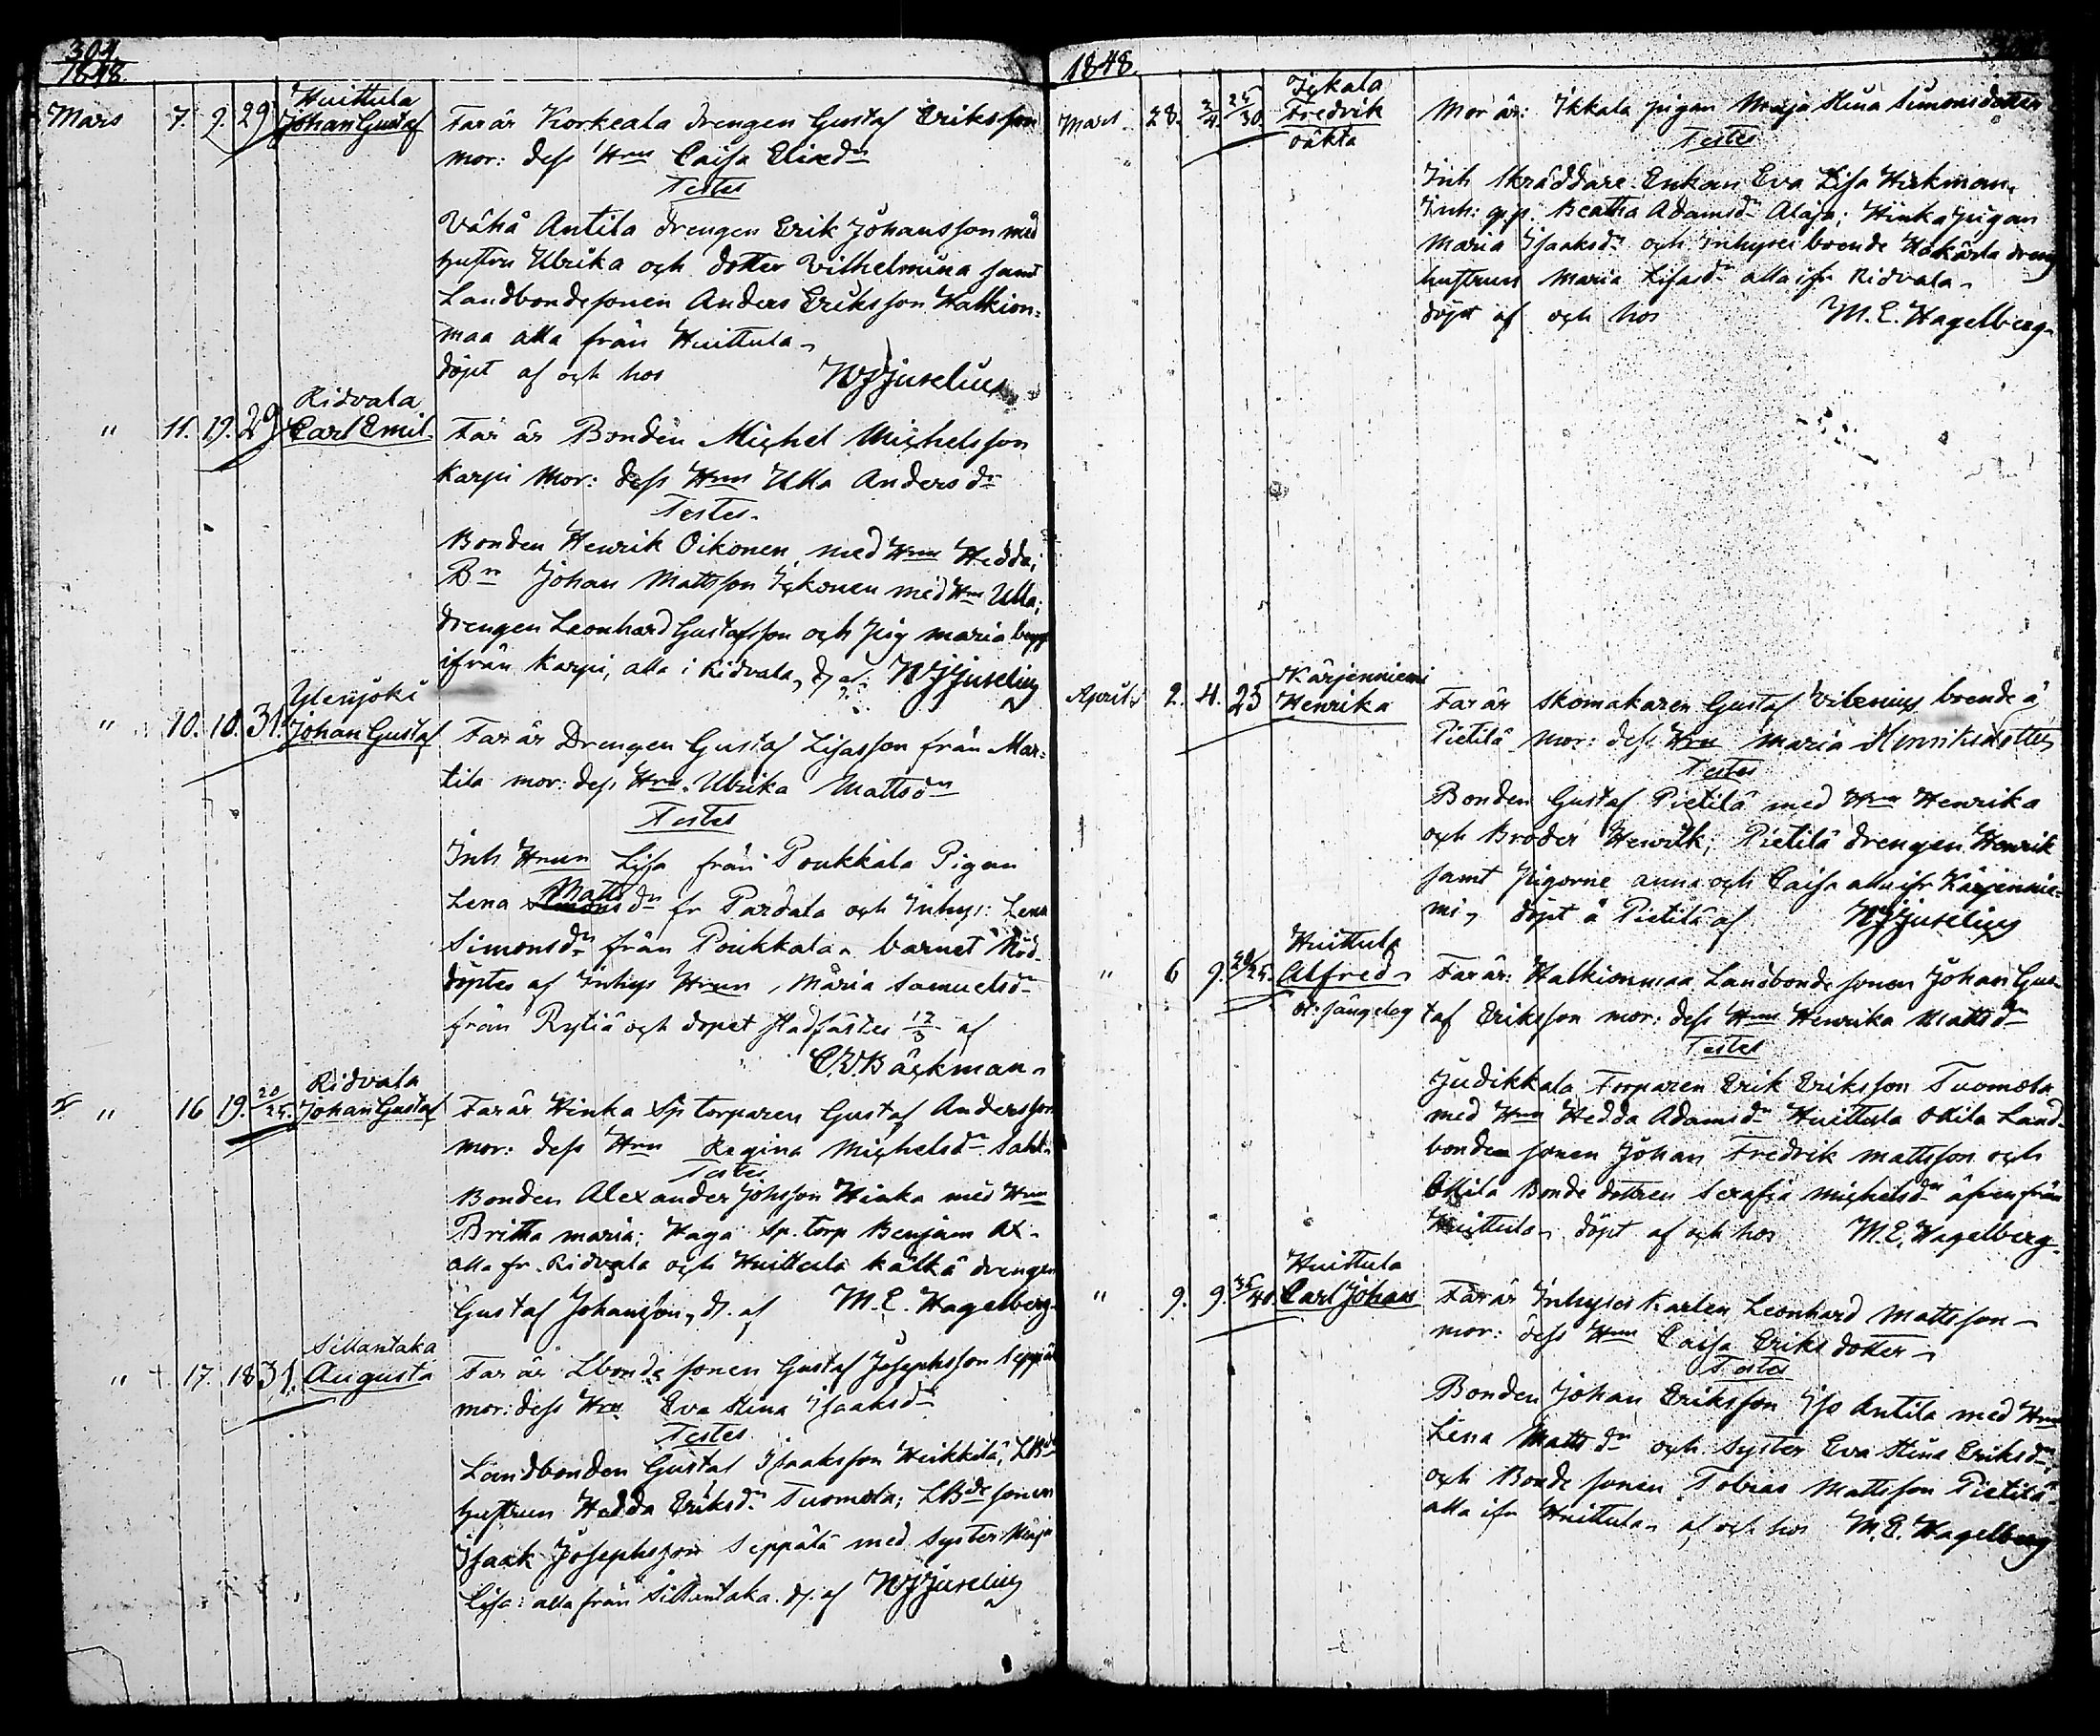 304.
1848.
Mars 7. 9. 29 Huittula
Johan Gustaf
Far är Korkeala drengen Gustaf Eriksson
mor: dess Hru Caisa Elixdr
Testes
Vähä Antila drengen Erik Johansson med
hustru Ulrika och dotter Vilhelmina samt
Landbondesonen Anders Eriksson Halkion-
maa alla från Huittula
döpt af och hos WJJuselius
" 11. 19. 29 Ridvala
Carl Emil.
Far är Bonden Michel Michelsson
Karpi Mor: dess Hru Ulla Andersdr
Testes.
Bonden Henrik Oikonen med Hru Hedda;
Bn Johan Mattsson Ickonen med Hru Ulla;
drengen Leonhard Gustafsson och pig maria
ifrån Karpi, alla i Ridvala, d. af. WJJuselius
" 10. 10. 31. Ylenjoki
Johan Gustaf
Far är Drengen Gustaf Lisasson från Mar-
tila mor: dess Hru. Ulrika Mattsdr
Testes
Inh Hrun Lisa från Poukkala Pigan
Lena Matts dr fr Pardala och Inhys: Lena
Simonsdr från Poukkala. barnet Nöd-
döptes af Inhys Hrun, Maria Samuelsdr
från Rytiä och dopet stadfästes 17/3 af
C.V.Bäckman.
" 16 19. 20/25. Ridvala
Johan Gustaf
Far är Hinka Sp torparen Gustaf Andersson
mor: dess Hru Regina Michelsdr Sahl.
Testes
Bonden Alexander Johsson Hinka med Hru
Britha maria; Haga Sp. torp Benjam
alla fr. Ridvala och Huittula kälkä drengen
Gustaf Johansson, d. af M. E. Hagelberg.
" + 17. 18 31. Sillantaka
Augusta
Far är Lbonde sonen Gustaf Josephsson Seppälä
mor: dess Hru Eva Stina Isaaksdr
Testes
Landbonden Gustaf Isaaksson Heikkilä; LBde
hustrun Hedda Eriksdr Tuomola; LBde sonen
Isaak Josephsson Seppälä med syster Maja
Lisa: alla från Sillantaka. d. af WJJuselius
1848.
Mars 28. 2/4. 25/30 Ickala
Fredrik
oäkta
Mor är: Ickala pigan Maja Stina Simonsdotter
Testes
Inh Skräddare Enkan Eva Lisa Hirkman,
Inh: gp. Beatha Adamsdr Alaja; Hinka pigan
Maria Isaaksdr och Inhyses boende Hakärla dreng
hustrun Maria Lisasdr alla ifr Ridvala
döpt af och hos M. E. Hagelberg.
April 2. 4. 25 Kärjenniemi
Henrika
Far är skomakaren Gustaf Vilenius boende å
Pietilä mor: dess Hru Maria Henriksdotter
Testes
Bonden Gustaf Pietilä med Hru Henrika
och Broder Henrik; Pietilä drengen Henrik
samt Pigorne anna och Caisa alla ifr Kärjennie-
mi, döpt å Pietilä af WJJuselius
" 6 9. 20/25. Huittula
Alfred
st: sängelag
Far är: Halkionmaa Landbonde sonen Johan Gus-
taf Eriksson mor: dess Hru Henrika Mattsdr
Testes
Judikkala Torparen Erik Eriksson Tuomola
med Hru Hedda Adamsdr Huittula Okila Land-
bonden sonen Johan Fredrik Mattsson och
Okila Bonde dottren Serafia Michelsdr äfven från
Huittula döpt af och hos M. E. Hagelberg.
" 9. 9. 35/40. Huittula
Carl Johan
Far är Inhyses karlen Leonhard Mattsson
mor: dess Hru Caisa Eriks dotter
Testes
Bonden Johan Eriksson Iso Antila med Hru
Lena Mattsdr och Syster Eva Stina Eriksdr
och Bonde sonen Tobias Mattsson Pietilä
alla ifr Huittula, af och hos M. E. Hagelberg